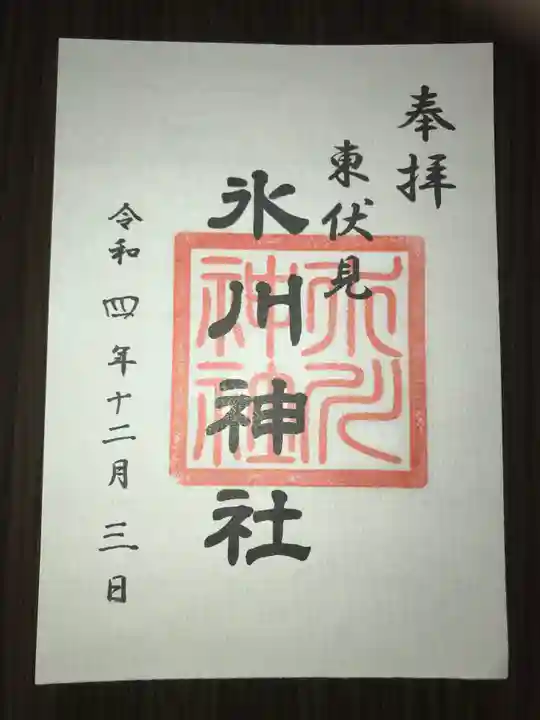 奉拝
東伏見
氷川神社
氷川
神社
令和四年十二月三日